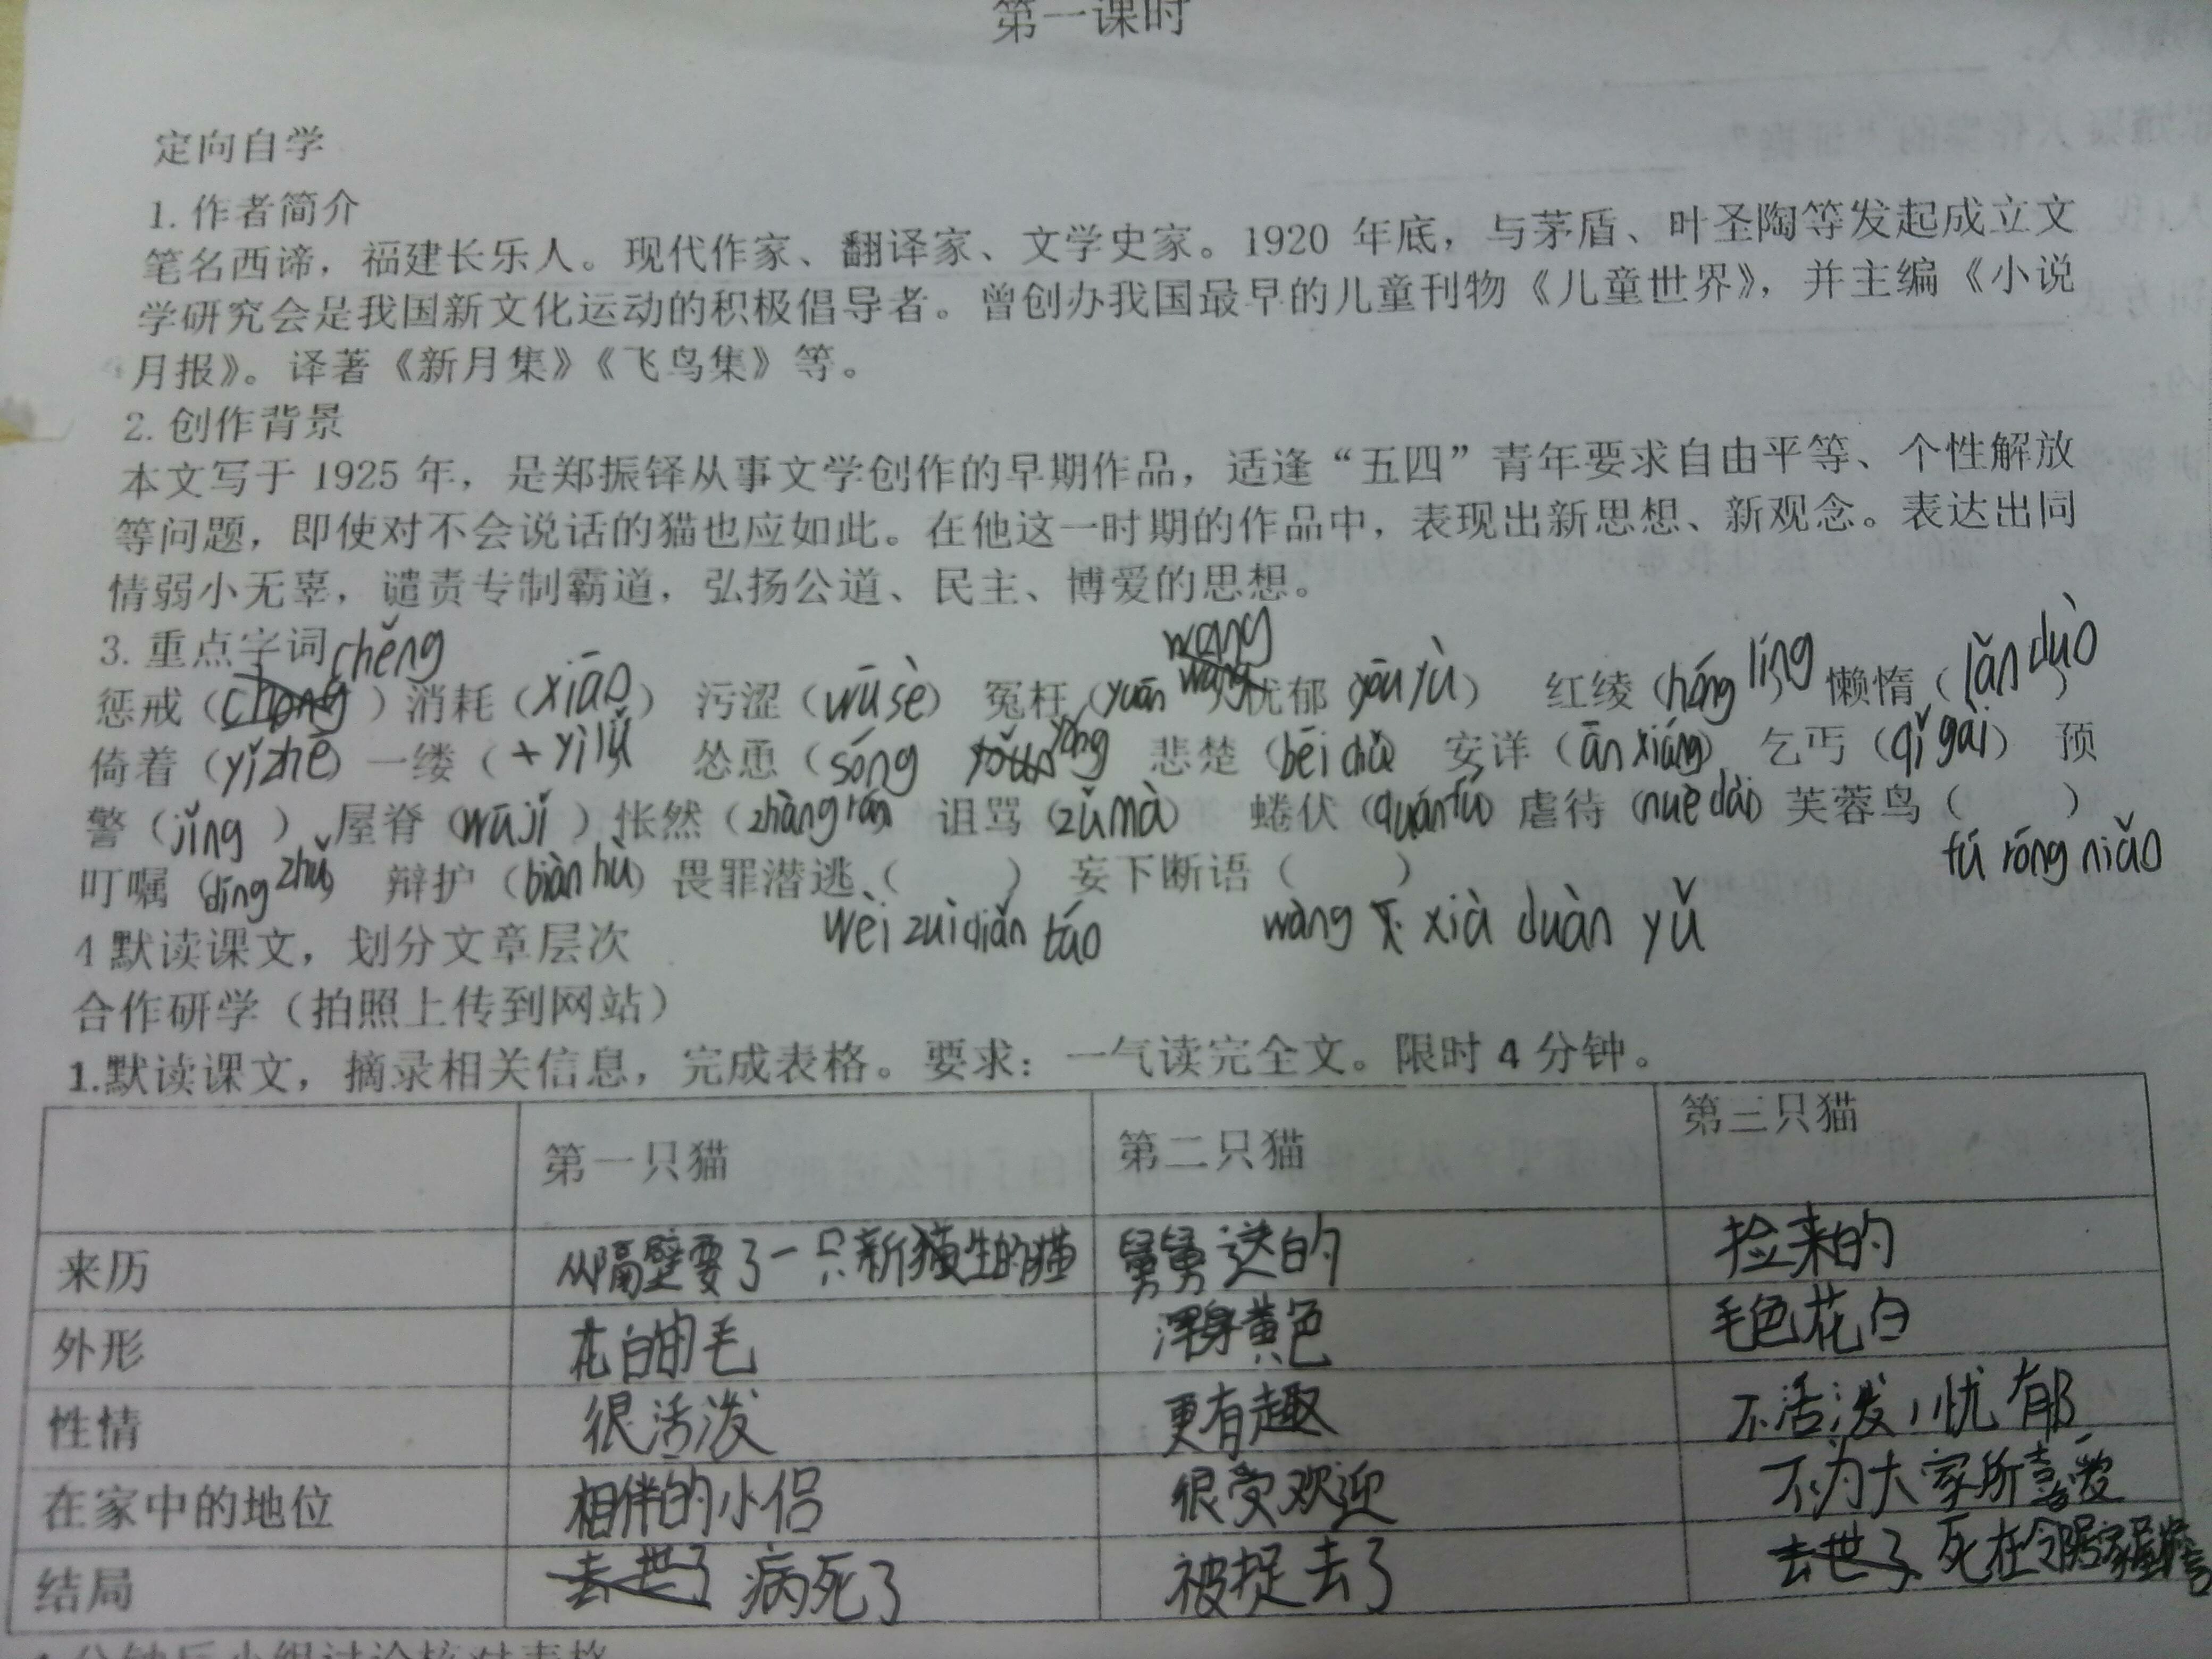 第一课时
定向自学
1. 作者简介
笔名西谛，福建长乐人。现代作家、翻译家、文学史家。1920 年底，与茅盾、叶圣陶等发起成立文
学研究会是我国新文化运动的积极倡导者。曾创办我国最早的儿童刊物《儿童世界》，并主编《小说
月报》。译著《新月集》《飞鸟集》等。
2. 创作背景
本文写于 1925 年，是郑振铎从事文学创作的早期作品，适逢“五四”青年要求自由平等、个性解放
等问题，即使对不会说话的猫也应如此。在他这一时期的作品中，表现出新思想、新观念。表达出同
情弱小无辜，谴责专制霸道，弘扬公道、民主、博爱的思想。
3. 重点字词
惩戒（chěng）消耗（xiāo） 污涩（wū sè） 冤枉（yuān wang）忧郁（yōu yù） 红绫（hóng líng）懒惰（lǎn duò）
倚着（yǐ zhē）一缕（yì lǚ） 怂恿（sóng yǒng） 悲楚（bēi chǔ） 安详（ān xiáng） 乞丐（qǐ gài） 预
警（jǐng） 屋脊（wū jí）怅然（zhàng rán） 诅骂（zǔ mà） 蜷伏（quán fú）虐待（nuè dài）芙蓉鸟（ ）
fú róng niǎo
叮嘱（dīng zhǔ） 辩护（biàn hù）畏罪潜逃（ ） 妄下断语（ ）
wèi zuì qiǎn táo wàng xià duàn yǔ
4 默读课文，划分文章层次
合作研学（拍照上传到网站）
1.默读课文，摘录相关信息，完成表格。要求：一气读完全文。限时 4 分钟。
第一只猫 第二只猫 第三只猫
来历 从隔壁要了一只新生的猫 舅舅送的 捡来的
外形 花白的毛 浑身黄色 毛色花白
性情 很活泼 更有趣 不活泼，忧郁
在家中的地位 相伴的小侣 很受欢迎 不为大家所喜爱
结局 去世了 病死了 被捉去了 去世了 死在邻居家屋脊
分钟后小组讨论核对表格